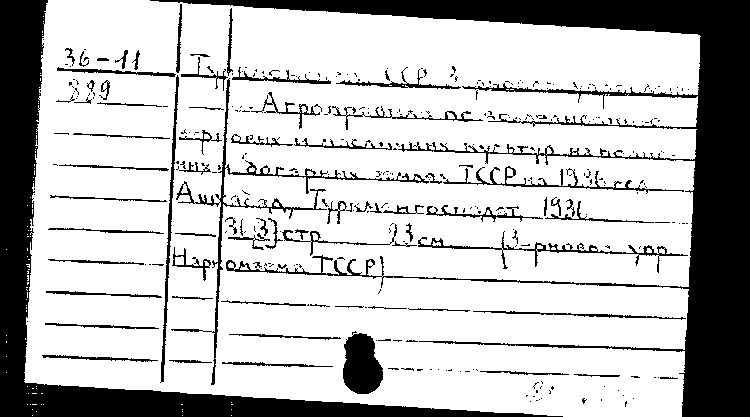 36-11
889
Туркменская ССР. Зерновое управление
Агроправила по возделыванию
зерновых и масличных культур на полив-
ных и богарных землях ТССР на 1936 год
Ашхабад, Туркменгосиздат, 1936
36 [3] стр 23 см (Зерновое упр
Наркомзема ТССР)